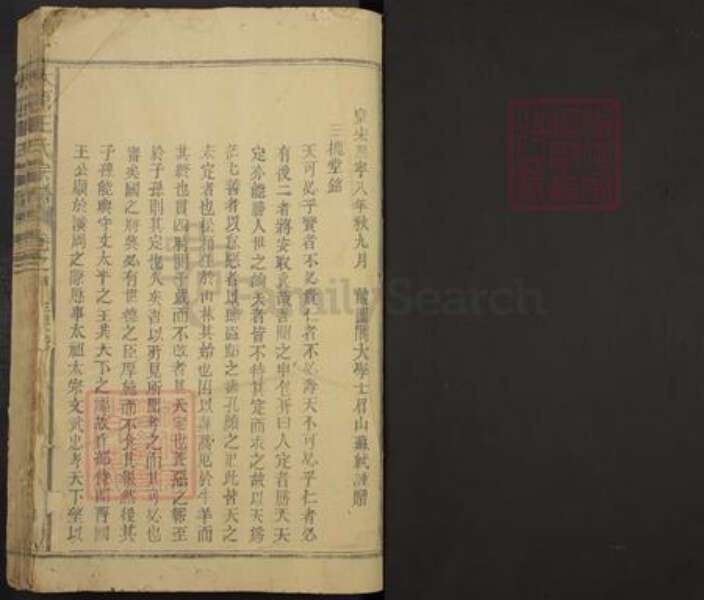 皇宋熙寧八年秋九月　龍圖閣大學士眉山蘇軾謹贈
三槐堂銘
天可必乎賢者不必貴仁者不必壽天不可必乎仁者必
有後二者將安取衷哉吾聞之申包胥曰人定者勝天天
定亦能勝人世之論天者皆不待其定而求之故以天為
茫茫善者以怠惡者以肆盜跖之壽孔顏之厄此皆天之
未定者也松柏生於山林其始也困以蓬蒿厄於牛羊而
其終也貫四時閱千歲而不改者其天定也善惡之報至
於子孫則其定也久矣吾以所見所聞考之而其可必也
審矣國之將興必有世德之臣厚施而不食其報然後其
子孫能與守文太平之主共天下之福故兵部侍郎晉國
王公顯於漢周之際歷事太祖太宗文武忠孝天下望以
FamilySearch